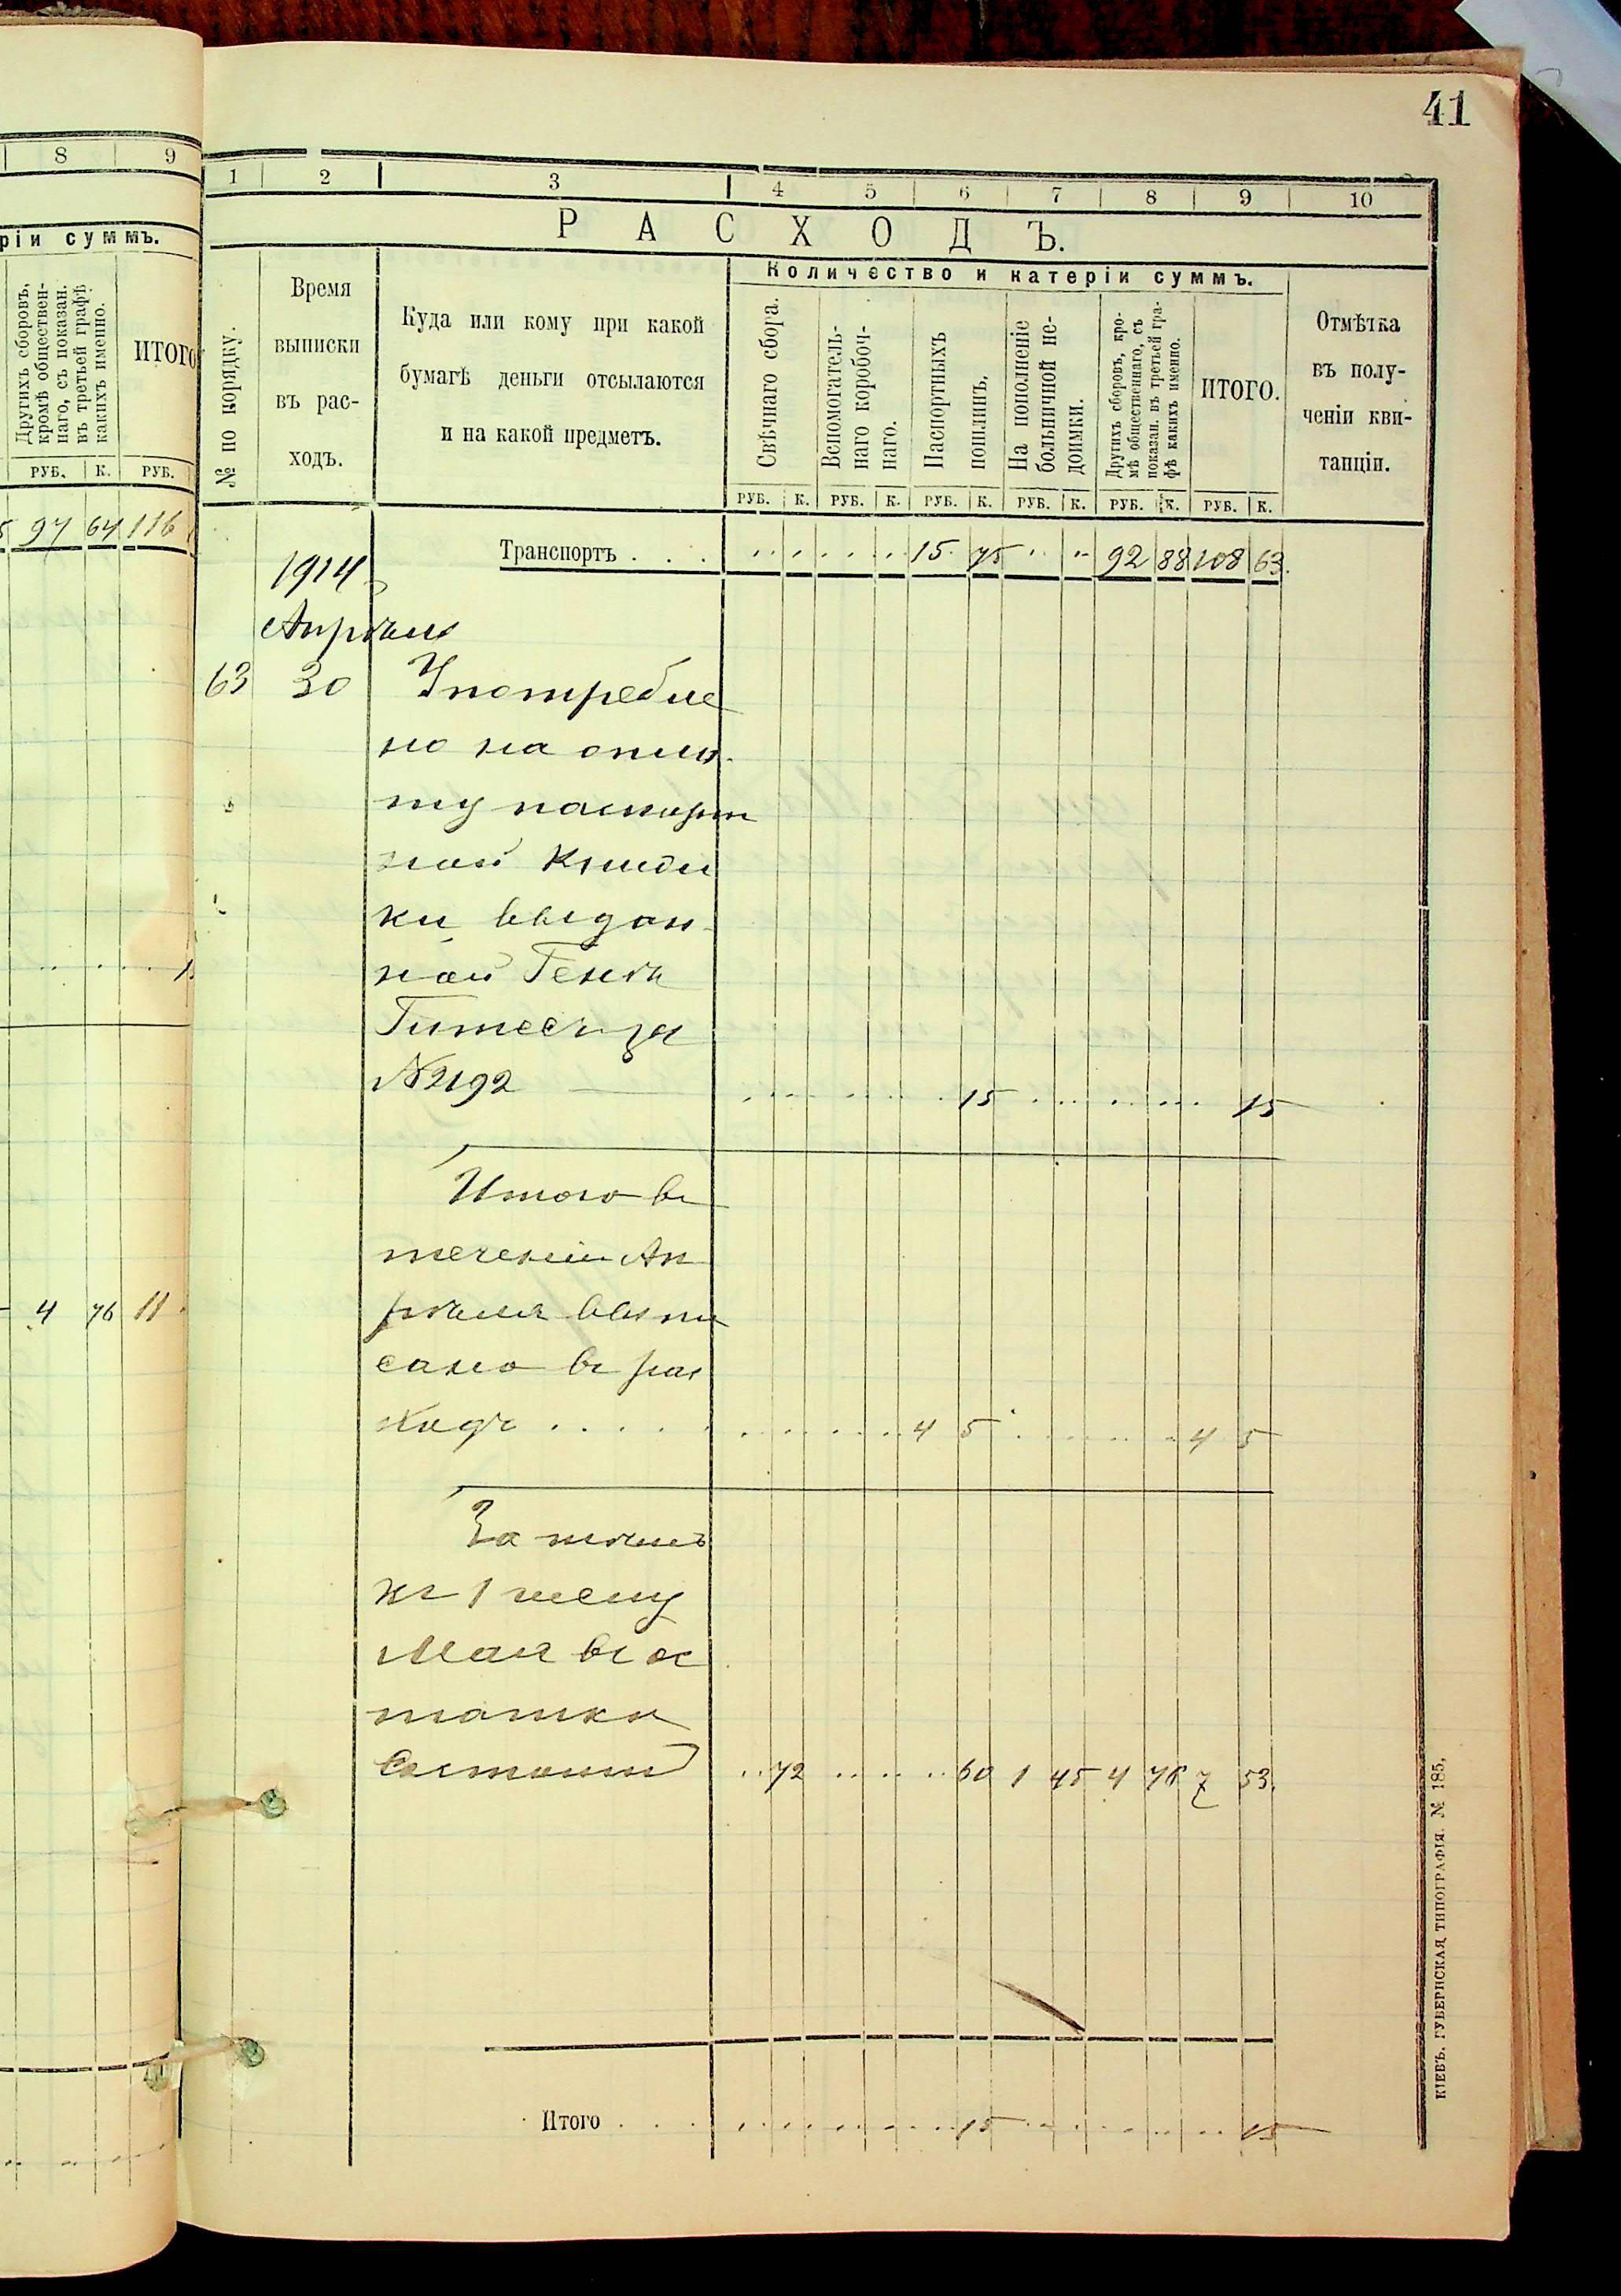 41
8 9
ріи суммъ.
Другихъ сборовъ,
кромѣ обществен-
наго, съ показан.
въ третьей графѣ
какихъ именно.
ИТОГО
РУБ. К. РУБ.
97 64 116
4 76 11
1 2 3 4 5 6 7 8 9 10
РАСХОДЪ.
Количество и катеріи суммъ.
№ по порядку.
Время
выписки
въ рас-
ходъ.
Куда или кому при какой
бумагѣ деньги отсылаются
и на какой предметъ.
Свѣчнаго сбора.
Вспомогатель-
наго коробоч-
наго.
Паспортныхъ
пошлинъ.
На пополненіе
больничной не-
доимки.
Другихъ сборовъ, кро-
мѣ общественнаго, съ
показан. въ третьей гра-
фѣ какихъ именно.
ИТОГО.
Отмѣтка
въ полу-
ченіи кви-
танціи.
РУБ. К. РУБ. К. РУБ. К. РУБ. К. РУБ. К. РУБ. К.
Транспортъ . . . 15 75 92 88 108 63
1914
Апрѣль
63 30 Употребле
но на опла-
ту паспорт
ной книж
ки выдан-
ной
за
№ 192 15 15
Итого въ
теченіи Ап
рѣля выпи
сано въ рас
ходъ . . . . . 4 5 4 5
За тѣмъ
къ 1 чему
Мая въ ос
татки
состоитъ 72 60 1 45 4 76 7 53
Итого . . . 15 15
КІЕВЪ. ГУБЕРНСКАЯ ТИПОГРАФІЯ. № 185.